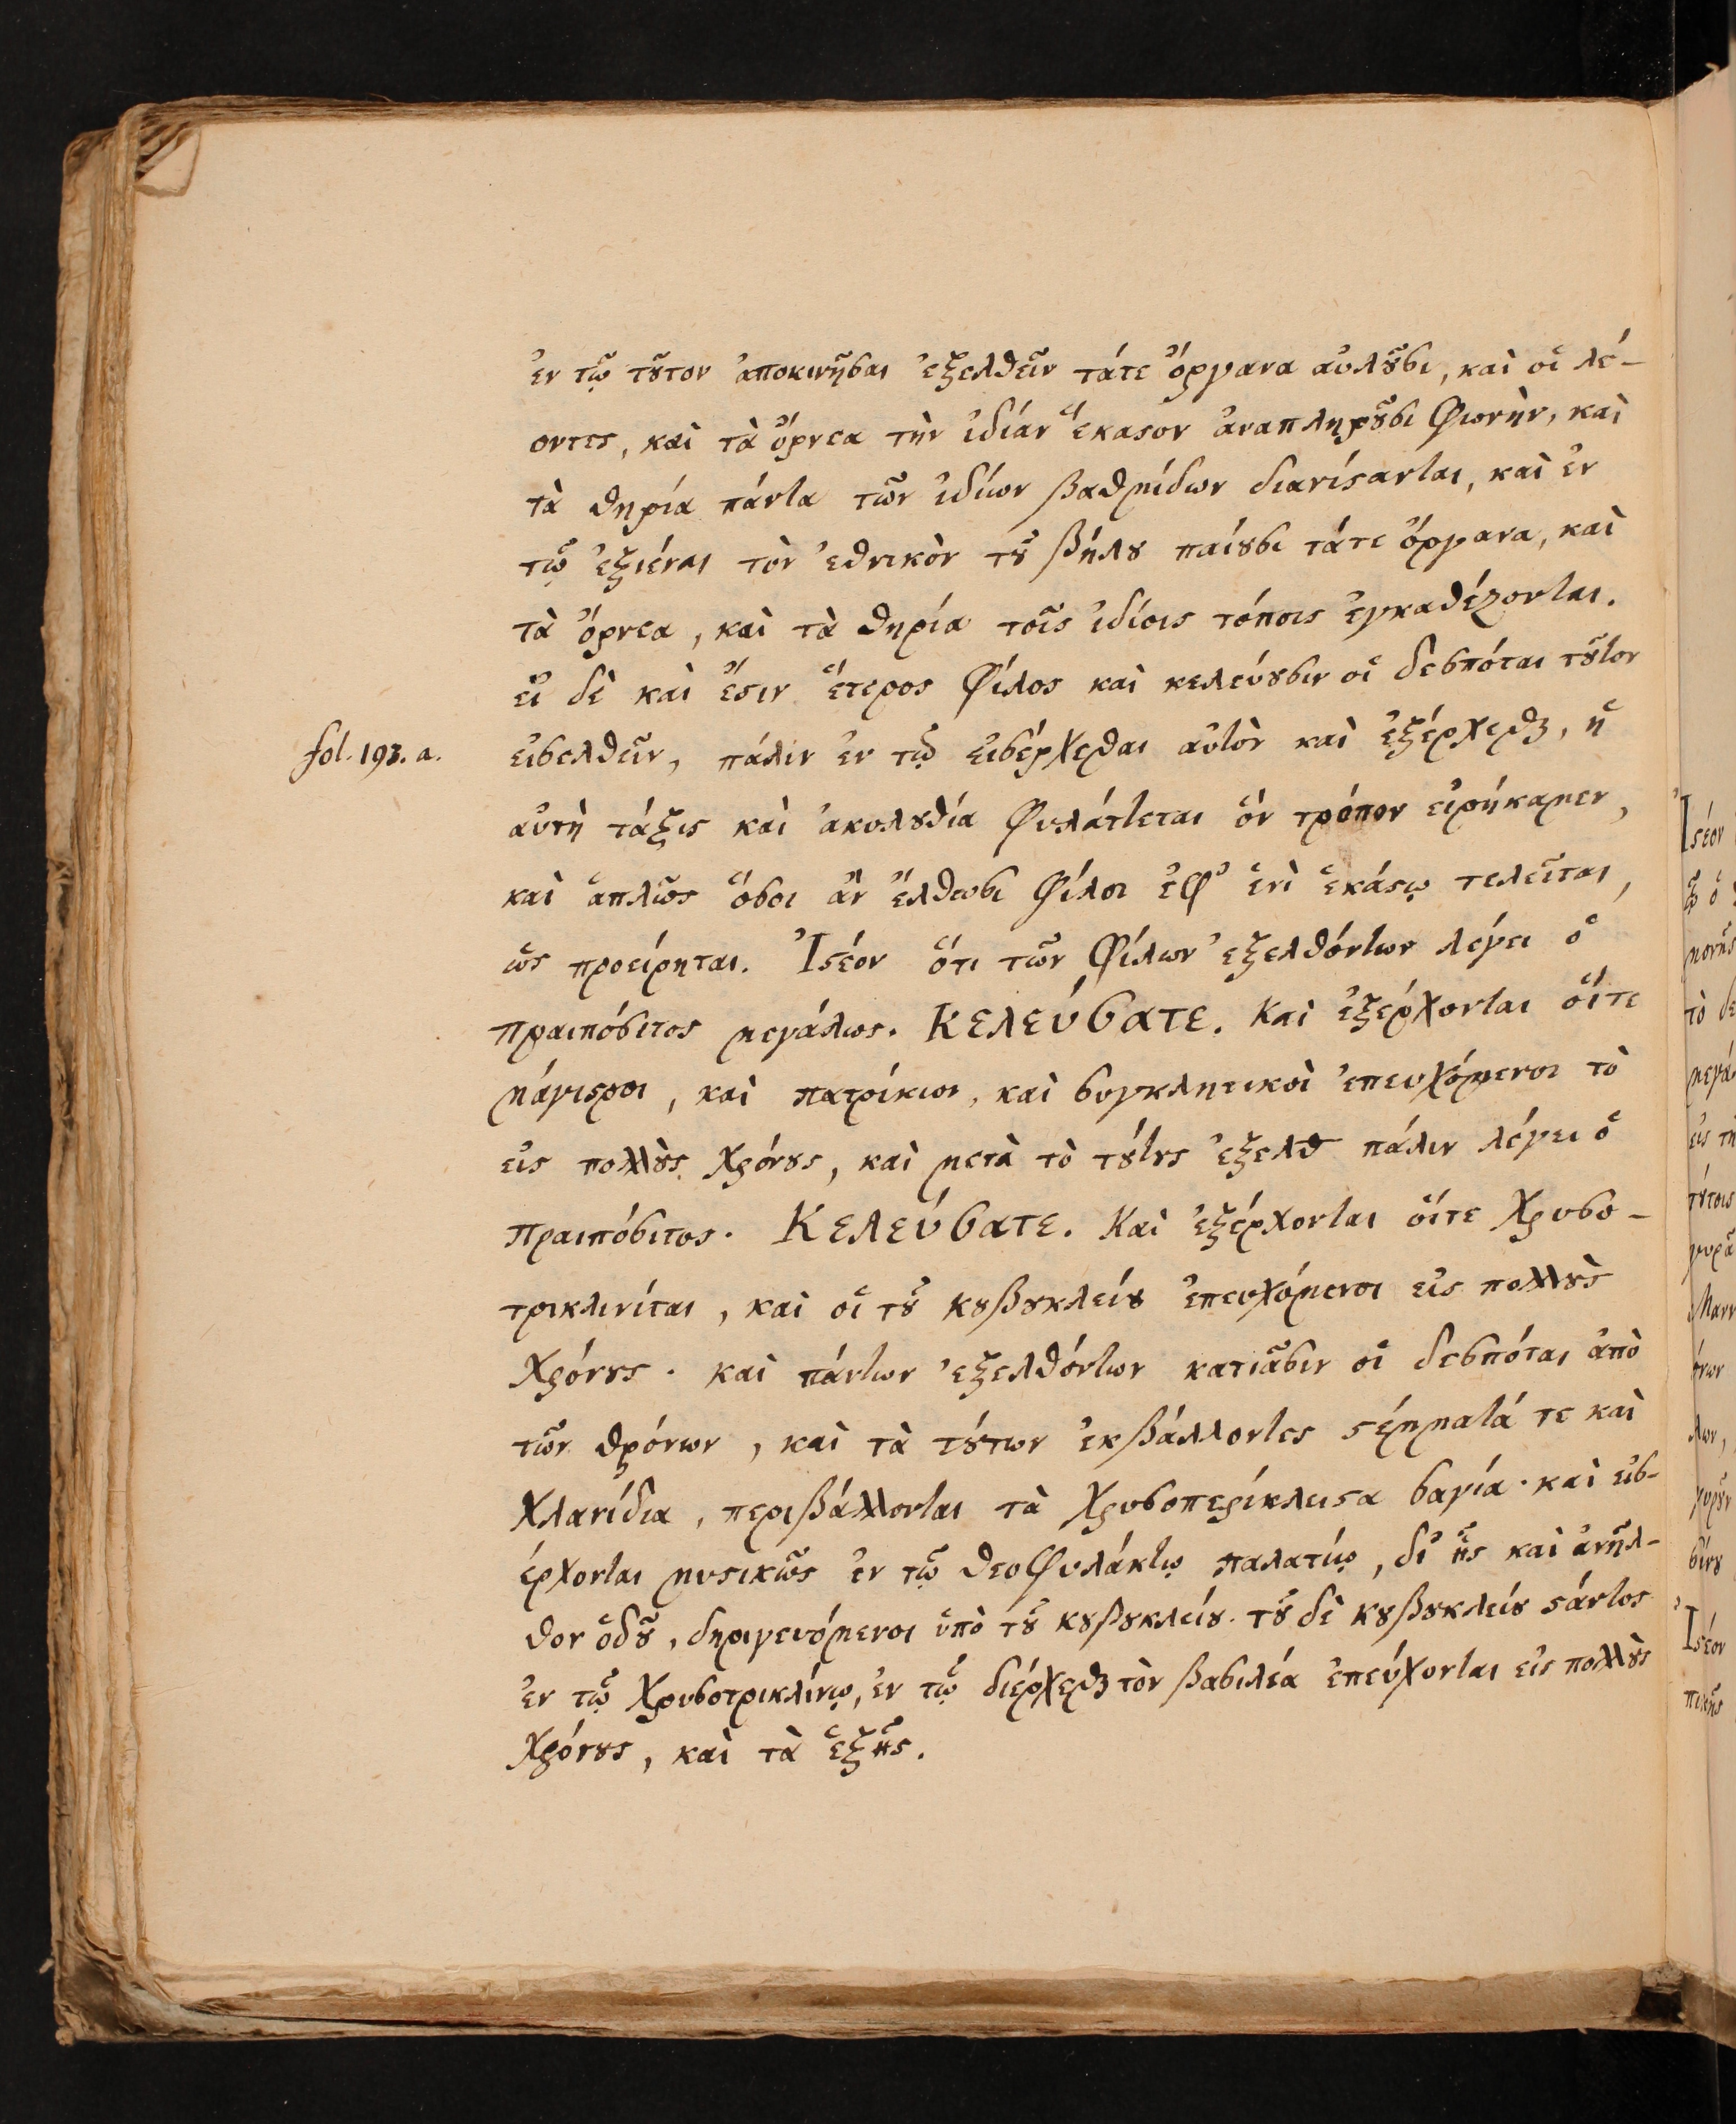 ἐν τῷ τοῦτον ἀποκινῆσαι ἐξελθεῖν τάτε ὄργανα αὐλοῦσι, καὶ οἱ λέ-
οντες, καὶ τὰ ὄρνεα τὴν ἰδίαν ἕκαστον ἀναπληροῦσι φωνὴν, καὶ
τὰ θηρία πάντα τῶν ἰδίων βαθμίδων διανίσανται, καὶ ἐν
τῷ ἐξιέναι τὸν ἐθνικὸν τοῦ βήλου παίουσι τάτε ὄργανα, καὶ
τὰ ὄρνεα, καὶ τὰ θηρία τοῖς ἰδίοις τόποις ἐγκαθέζονται.
εἰ δὲ καὶ ἔστιν ἕτερος φίλος καὶ κελεύουσιν οἱ δεσπόται τοῦτον
fol. 193. a.
εἰσελθεῖν, πάλιν ἐν τῷ εἰσέρχεσθαι αὐτὸν καὶ ἐξέρχεσθαι, ἡ
αὐτὴ τάξις καὶ ἀκολουθία φυλάττεται ὃν τρόπον εἰρήκαμεν,
καὶ ἁπλῶς ὅσοι ἂν ἔλθωσι φίλοι ἐφ' ἑνὶ ἑκάστῳ τελεῖται,
ὡς προείρηται. Ἰστέον ὅτι τῶν φίλων ἐξελθόντων λέγει ὁ
πραιπόσιτος μεγάλως. Κελεύσατε. Καὶ ἐξέρχονται οἵτε
μάγιστροι, καὶ πατρίκιοι, καὶ συγκλητικοὶ ἐπευχόμενοι τὸ
εἰς πολλοὺς χρόνους, καὶ μετὰ τὸ τούτους ἐξελθ πάλιν λέγει ὁ
πραιπόσιτος. Κελεύσατε. Καὶ ἐξέρχονται οἵτε χρυσο-
τρικλινίται, καὶ οἱ τοῦ κουβουκλείου ἐπευχόμενοι εἰς πολλοὺς
χρόνους. καὶ πάντων ἐξελθόντων κατιᾶσιν οἱ δεσπόται ἀπὸ
τῶν θρόνων, καὶ τὰ τούτων ἐκβάλλοντες στέμματά τε καὶ
χλανίδια, περιβάλλονται τὰ χρυσοπερίκλειστα σαγία· καὶ εἰσ-
έρχονται μυστικῶς ἐν τῷ θεοφυλάκτῳ παλατίῳ, δι' ἧς καὶ ἀνῆλ-
θον ὁδοῦ, δηριγευόμενοι ὑπὸ τοῦ κουβουκλείου. τοῦ δὲ κουβουκλείου στάντος
ἐν τῷ χρυσοτρικλίνῳ, ἐν τῷ διέρχεσθαι τὸν βασιλέα ἐπεύχονται εἰς πολλοὺς
χρόνους, καὶ τὰ ἑξῆς.